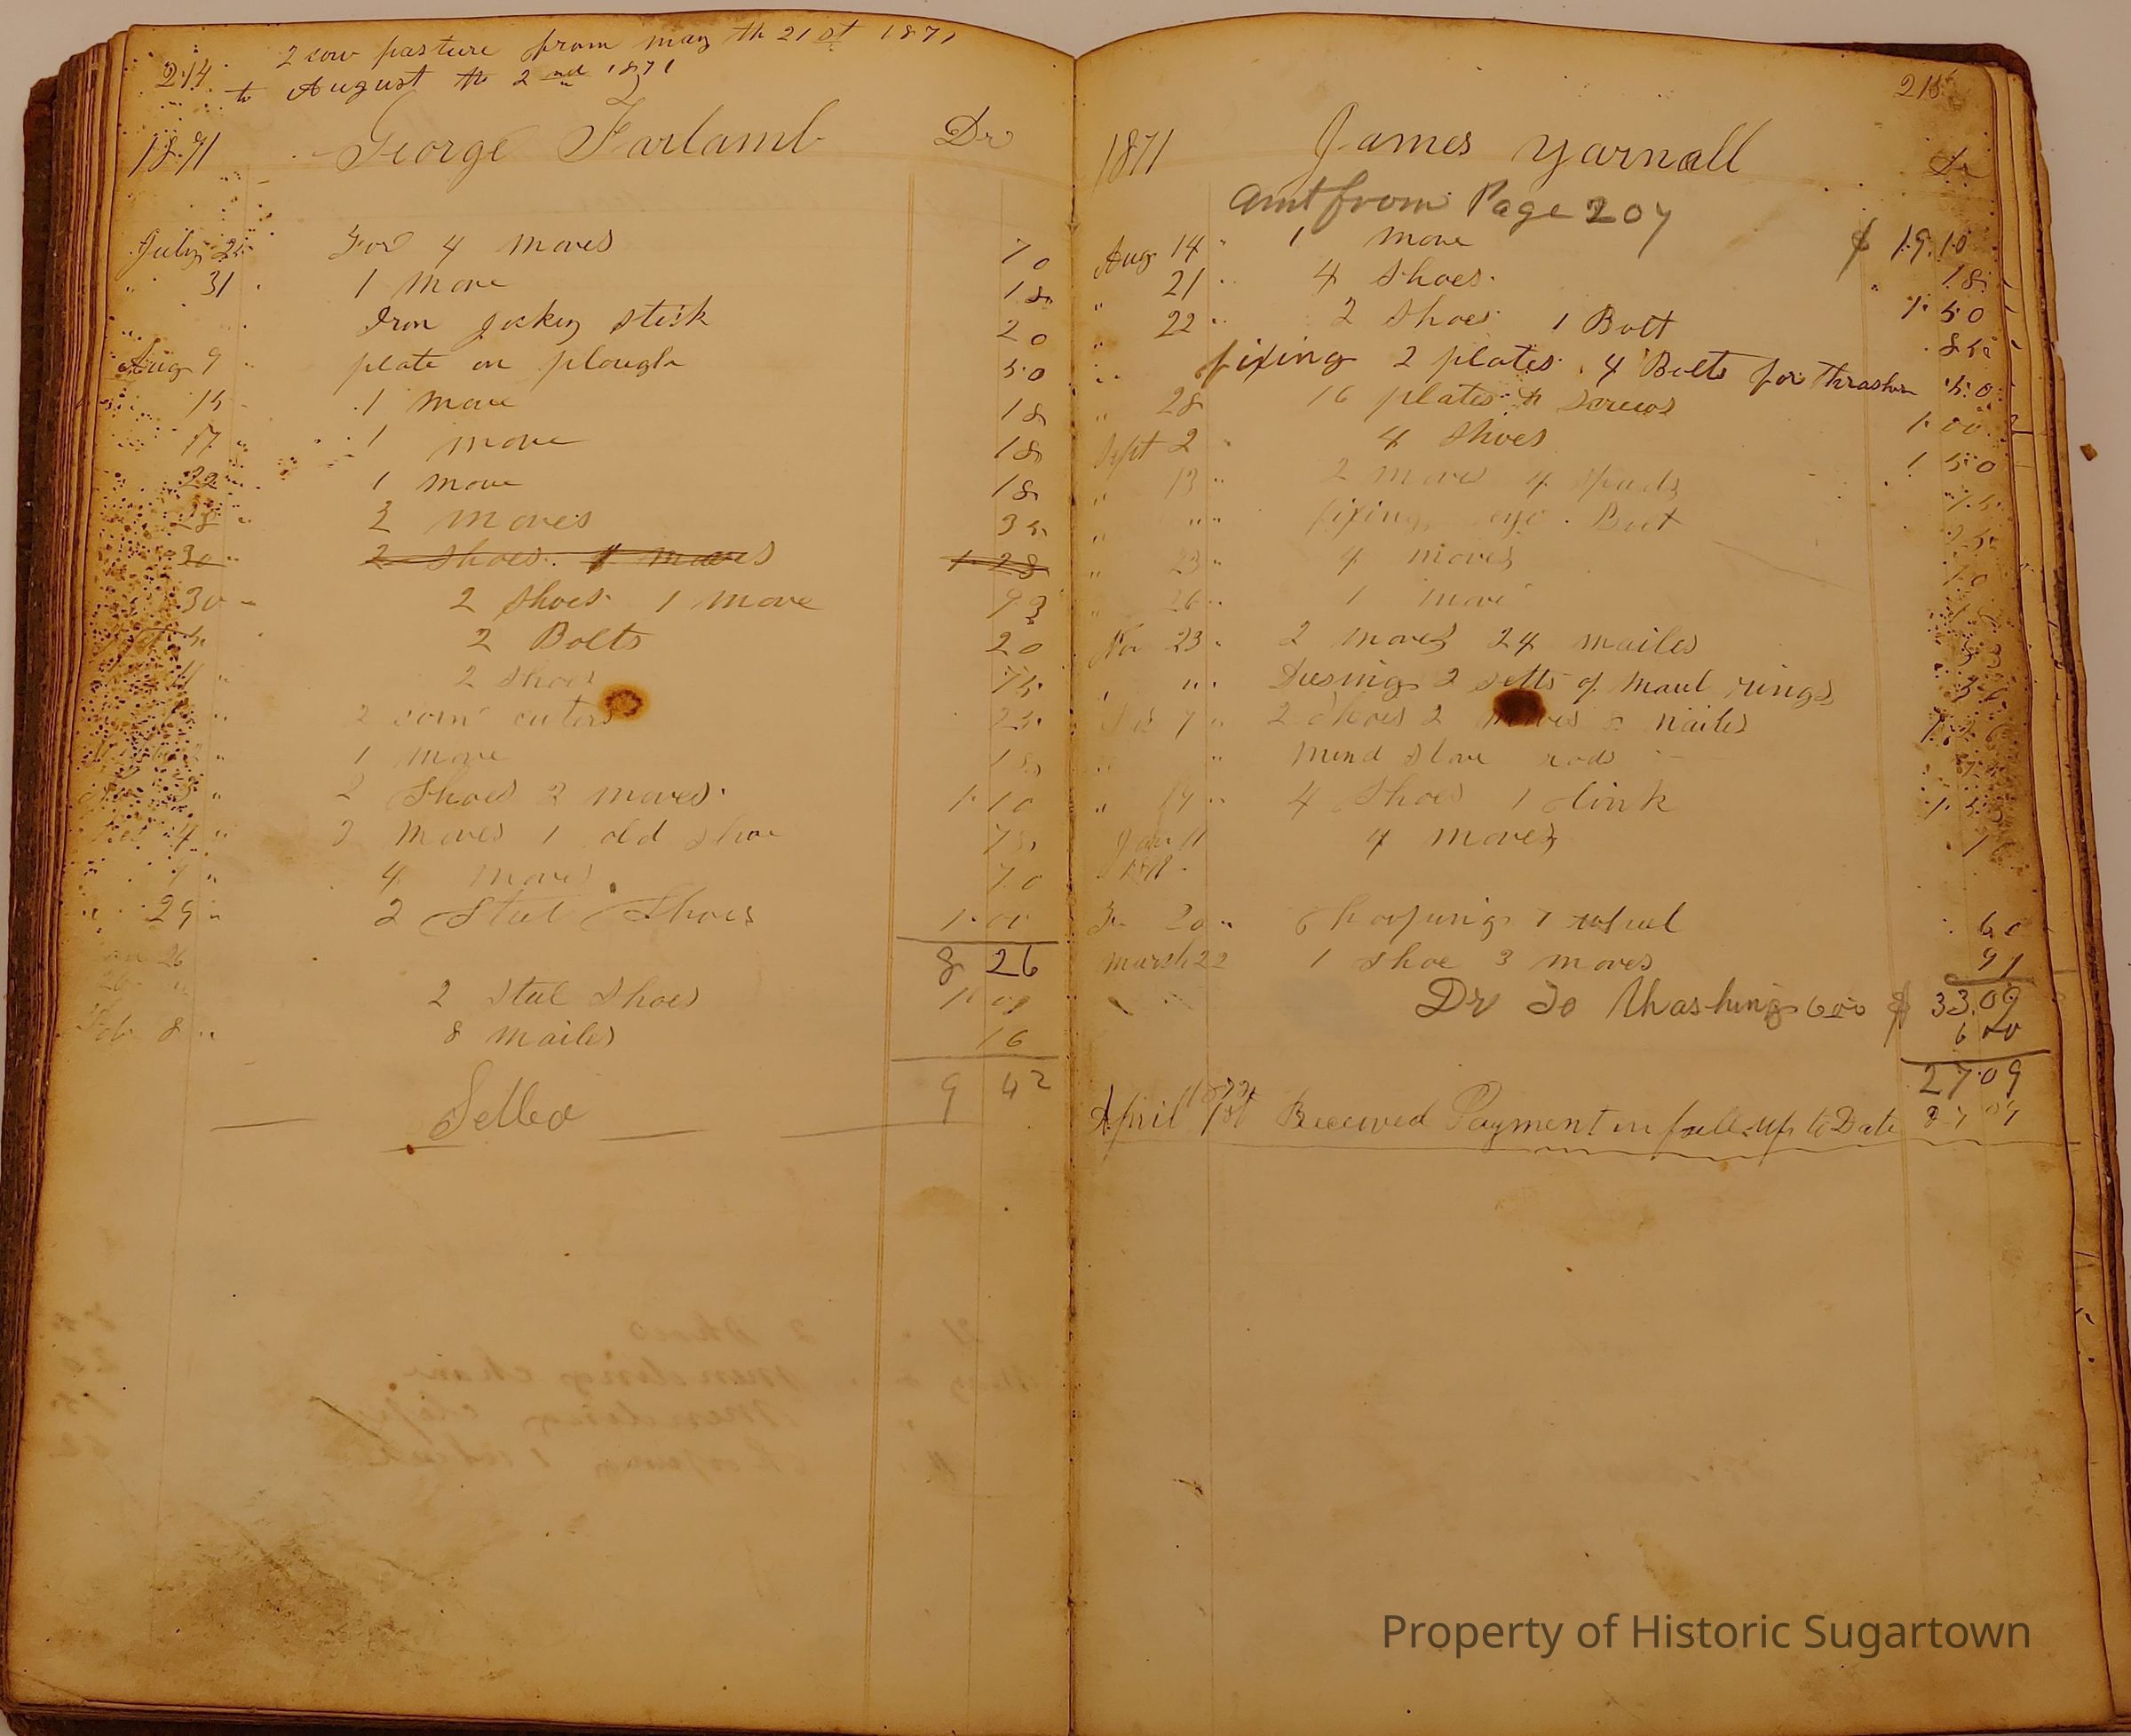 2 cow pasture from may th 21st 1871
214 to August th 2nd 1871
1871 George Farlamb Dr
July 25 For 4 moves 70
" 31 1 move 18
Iron jockey stick 20
Aug 9 plate on plough 50
15 1 move 18
17 1 move 18
22 1 move 18
28 2 moves 35
30 2 shoes 4 moves 1.28
30 2 shoes 1 move 93
2 Bolts 20
2 shoes 75
2 corn cuters 25
1 move 18
2 Shoes 2 moves 1.10
2 moves 1 old shoe 75
4 moves 70
29 2 Steel Shoes 1.00
8 26
26 2 steel shoes 1.00
Feb 8 8 nailes 16
9 42
Setled
215
1871 James Yarnall Dr
amt from Page 207
$ 19.10
Aug 14 1 move 18
" 21 4 shoes 1.50
" 22 2 Shoes 1 Bolt 85
fixing 2 plates 4 Bolts for thrasher 50
" 28 16 plates & screws 1.00
Sept 2 4 shoes 1 50
" 13 2 moves 4 spuds 75
" " fixing eye Bolt 25
" 23 4 moves 70
" 26 1 move 18
Nov 23 2 moves 24 nailes
" " 2 setts of maul rings
7 2 Shoes 2 moves 8 nailes
" " mend stove rods
" 19 4 Shoes 1 clink
Jan 11 4 moves
20 hooping 1 wheel 60
march 22 1 shoe 3 moves 91
Dr To thashing 600 $ 33.09
6 00
27.09
April 1st 1872 Received Payment in full up to Date 27 09
Property of Historic Sugartown